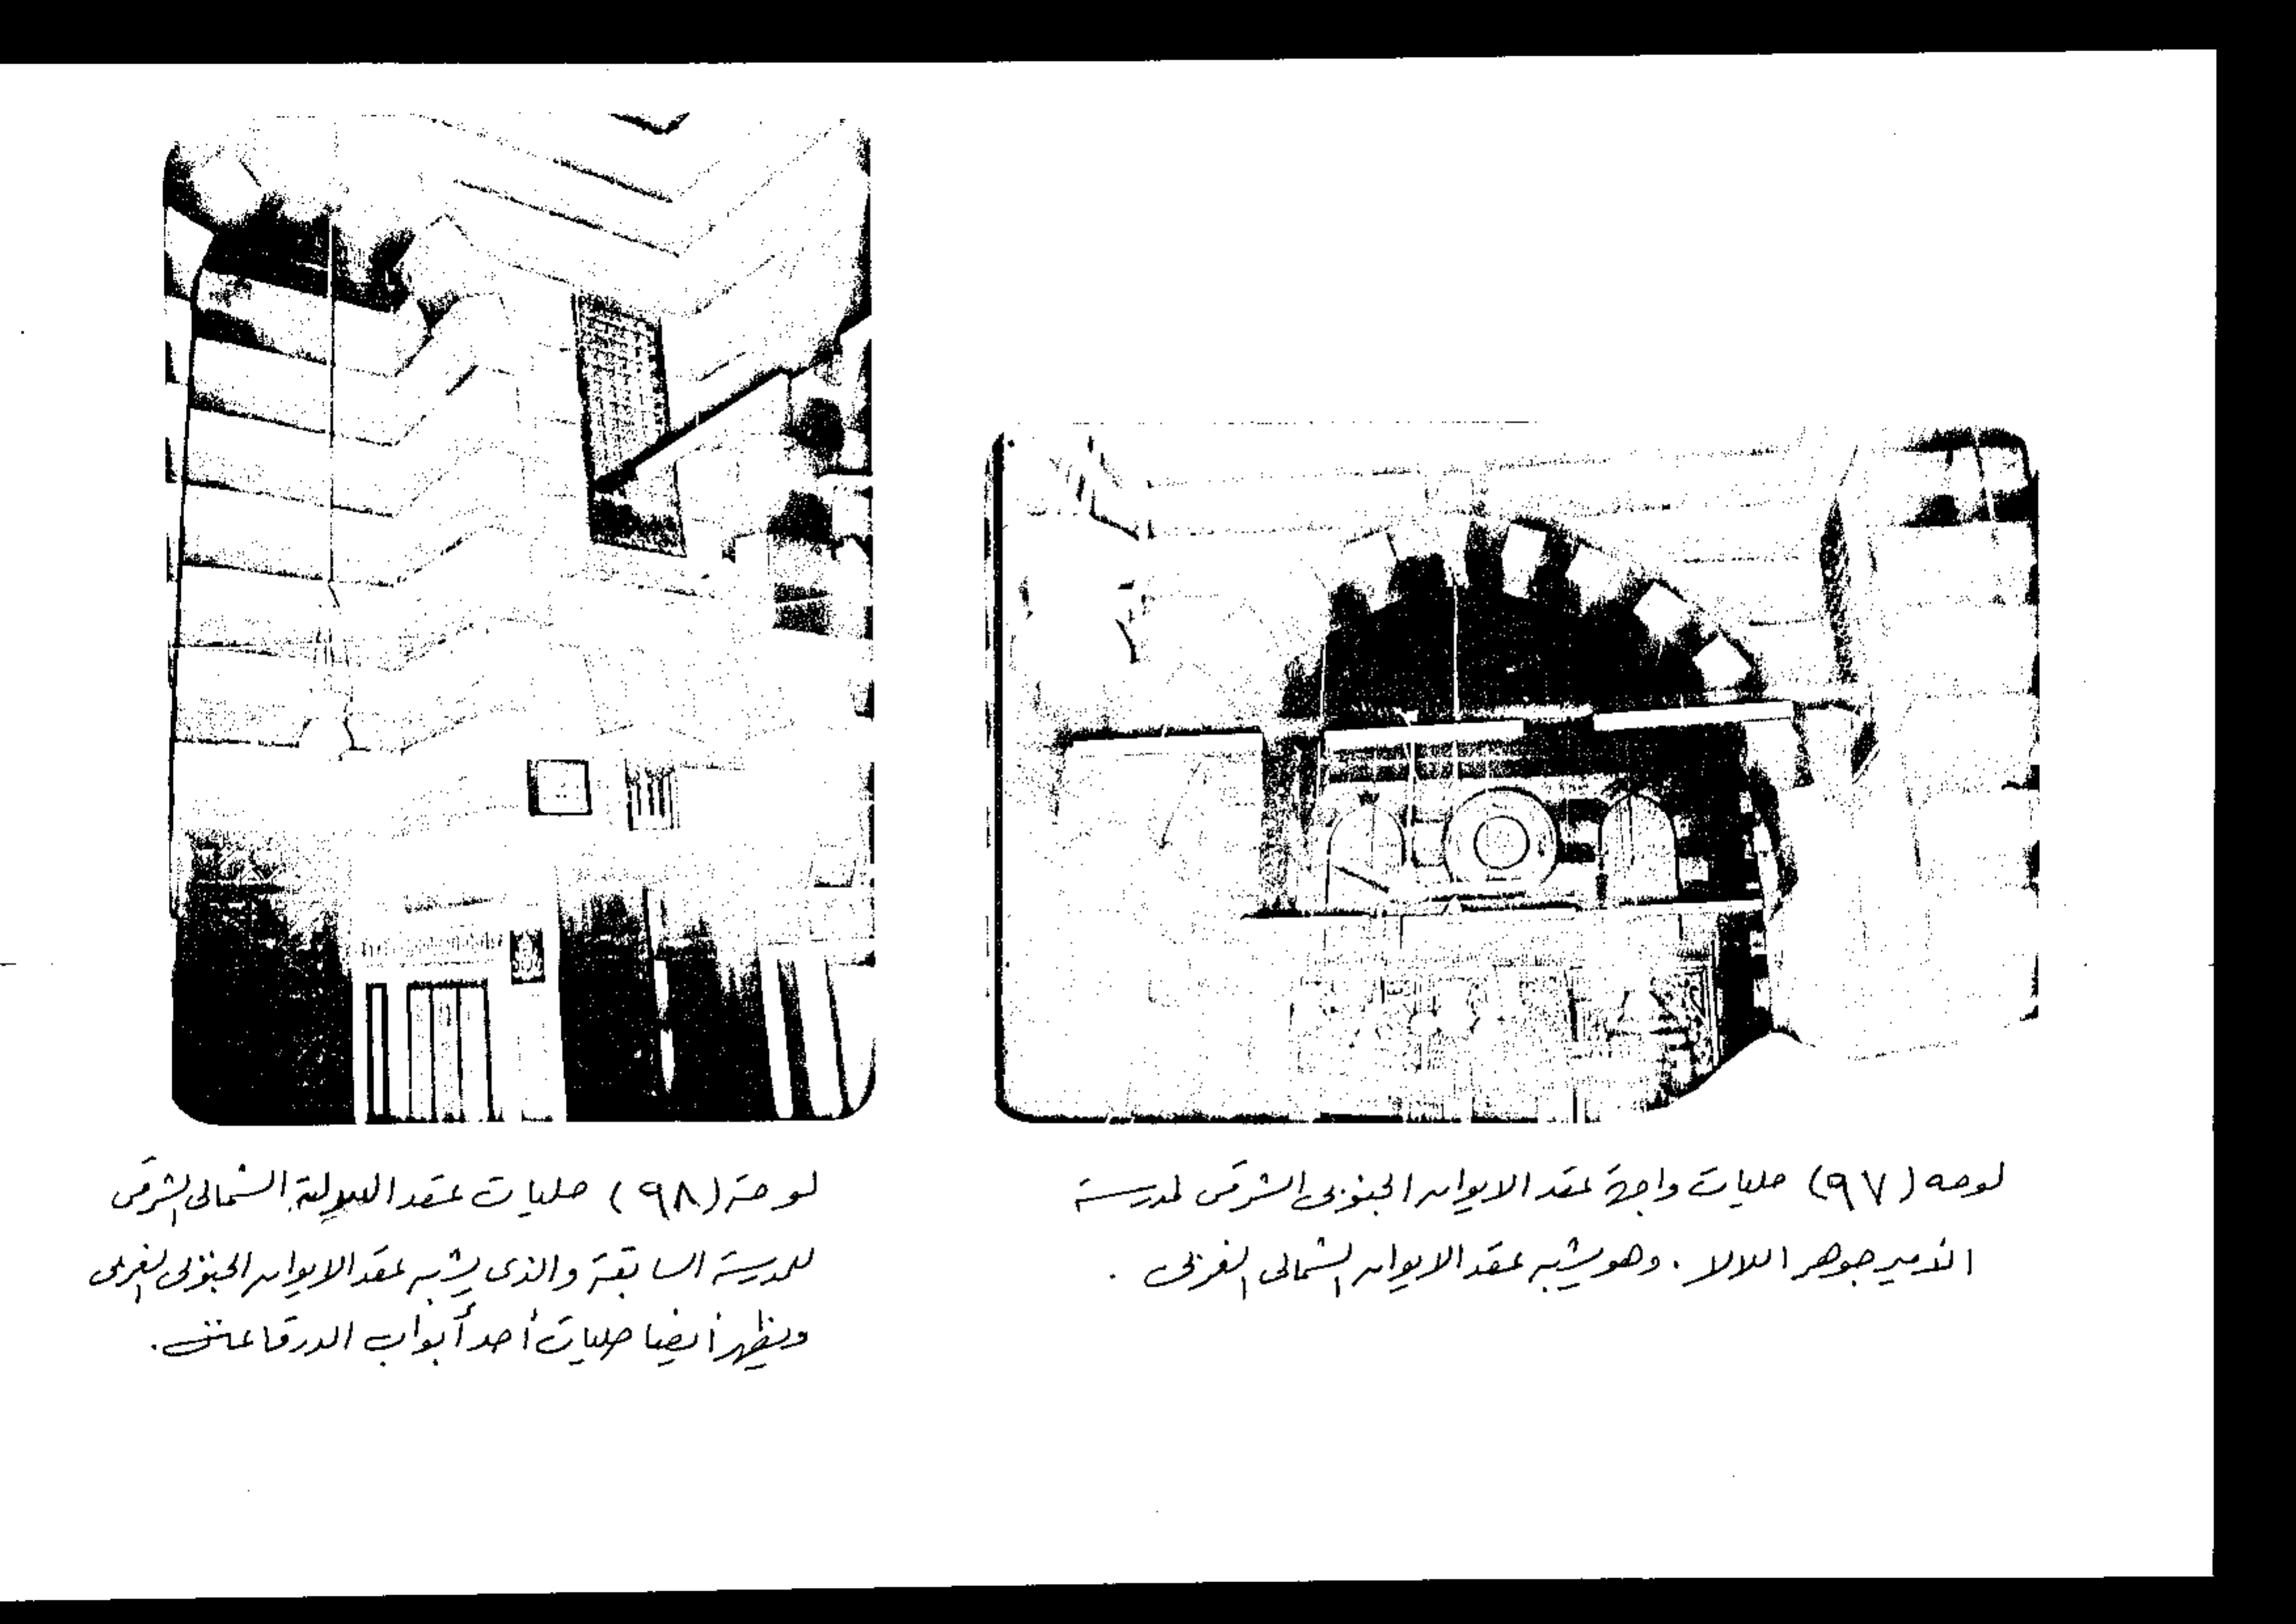 لوحه (٩٧) حليات واجهة عقد الايوان الجنوبى الشرقى لمدرسة
الأمير جوهر اللالا . وهو يشبه عقد الايوان الشمالى الغربى .
لوحة (٩٨) حليات عقد الشمالى الشرقى
للمدرسة السابقة والذى يشبه عقد الايوان الجنوبى الغربى
ويظهر أيضا حليات أحد أبواب الدرقاعة.